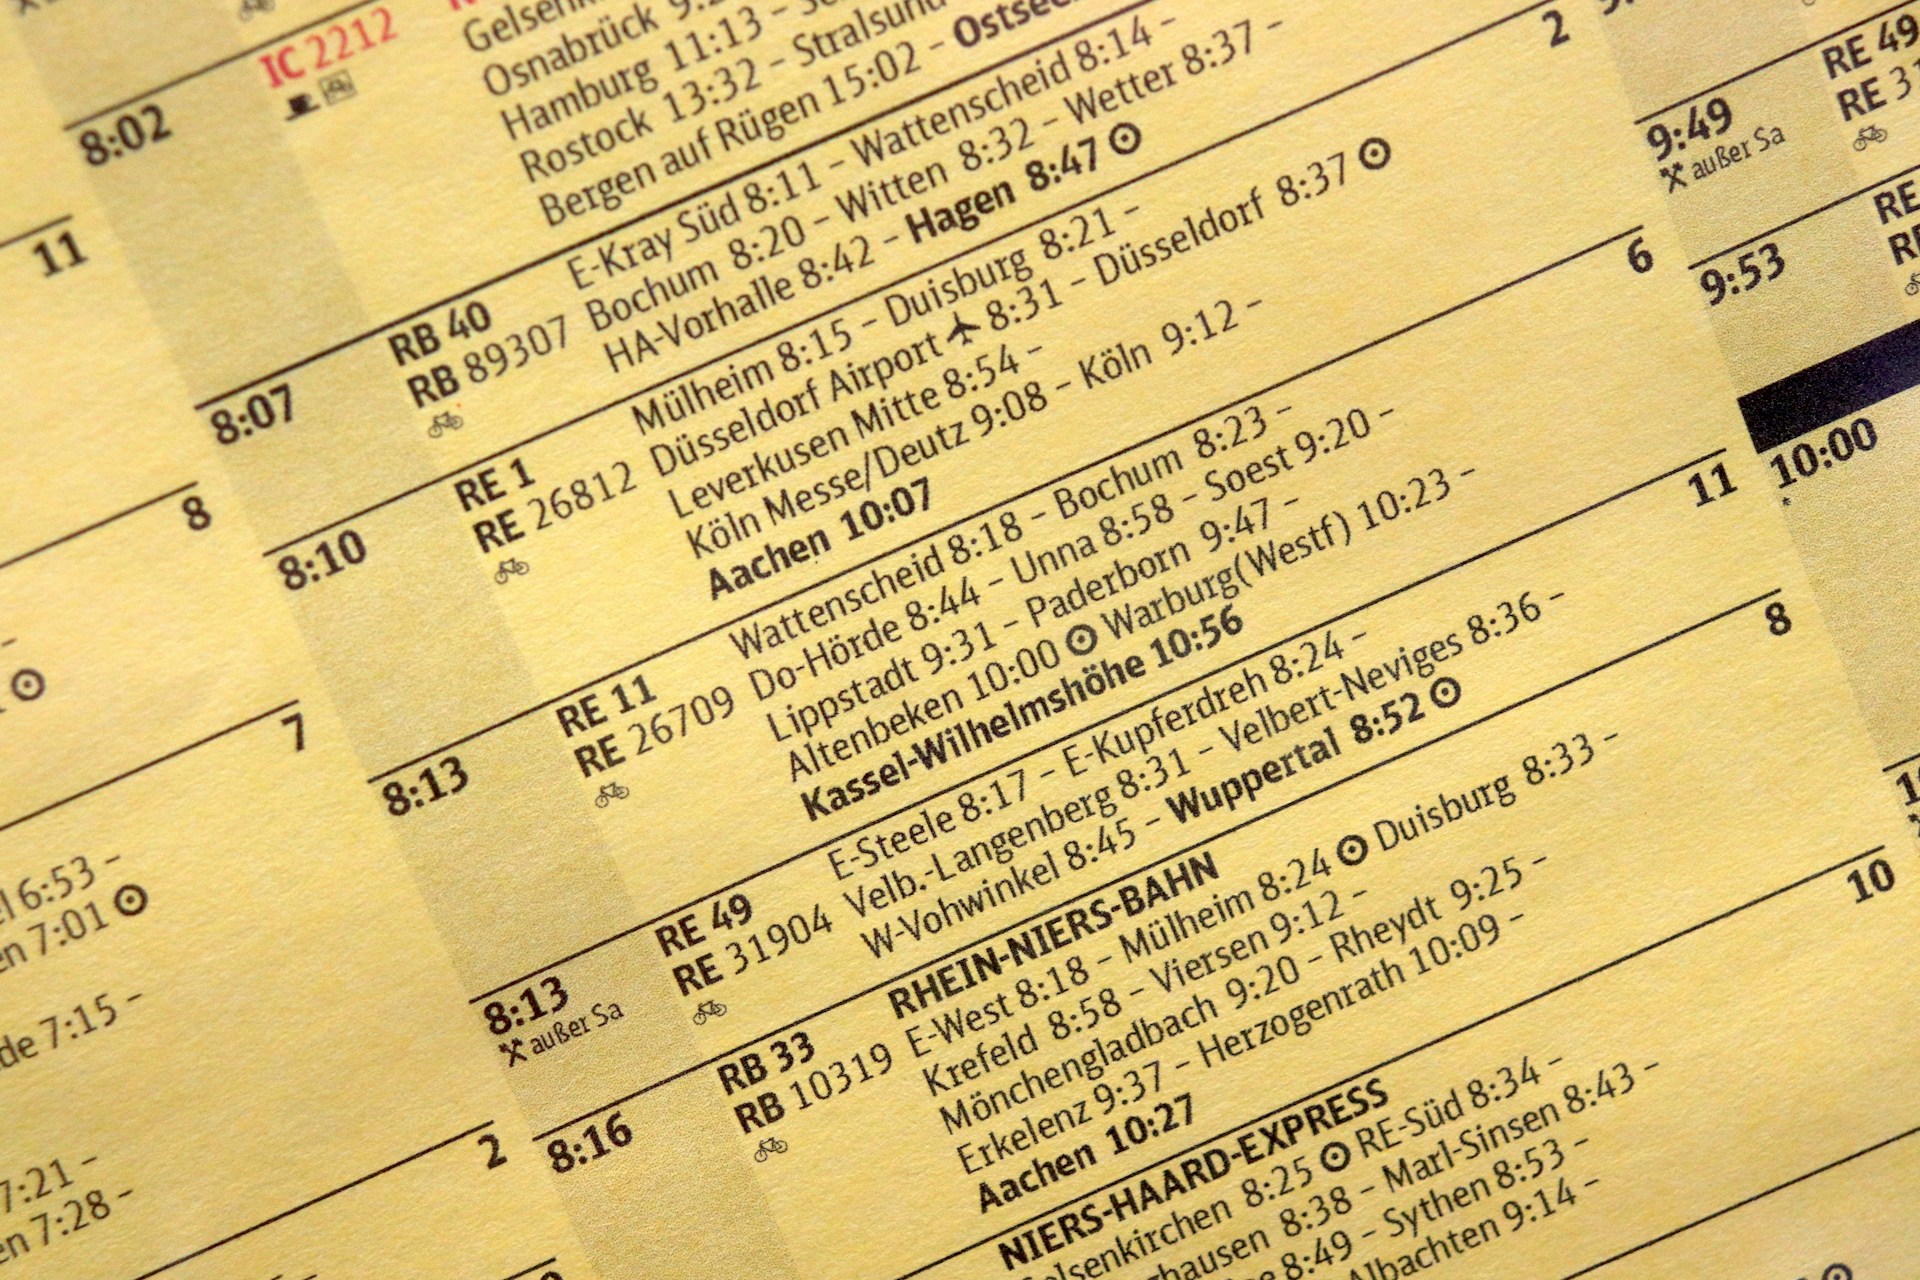 11
8
7
6:53 –
7:01
7:15 –
2
7:21 –
7:28 –
8:02
IC 2212
Osnabrück
Hamburg 11:13 –
Rostock 13:32 – Stralsund
Bergen auf Rügen 15:02 –
8:07
RB 40
RB 89307
E-Kray Süd 8:11 – Wattenscheid 8:14 –
Bochum 8:20 – Witten 8:32 – Wetter 8:37 –
HA-Vorhalle 8:42 – Hagen 8:47
8:10
RE 1
RE 26812
Mülheim 8:15 – Duisburg 8:21 –
Düsseldorf Airport 8:31 – Düsseldorf 8:37
Leverkusen Mitte 8:54 –
Köln Messe/Deutz 9:08 – Köln 9:12 –
Aachen 10:07
2
8:13
RE 11
RE 26709
Wattenscheid 8:18 – Bochum 8:23 –
Do-Hörde 8:44 – Unna 8:58 – Soest 9:20 –
Lippstadt 9:31 – Paderborn 9:47 –
Altenbeken 10:00 Warburg(Westf) 10:23 –
Kassel-Wilhelmshöhe 10:56
6
8:13
außer Sa
RE 49
RE 31904
E-Steele 8:17 – E-Kupferdreh 8:24 –
Velb.-Langenberg 8:31 – Velbert-Neviges 8:36 –
W-Vohwinkel 8:45 – Wuppertal 8:52
11
8:16
RB 33
RB 10319
RHEIN-NIERS-BAHN
E-West 8:18 – Mülheim 8:24 Duisburg 8:33 –
Krefeld 8:58 – Viersen 9:12 –
Mönchengladbach 9:20 – Rheydt 9:25 –
Erkelenz 9:37 – Herzogenrath 10:09 –
Aachen 10:27
8
NIERS-HAARD-EXPRESS
8:25 RE-Süd 8:34 –
8:38 – Marl-Sinsen 8:43 –
8:49 – Sythen 8:53 –
Albachten 9:14 –
10
9:49
außer Sa
RE 49
RE
9:53
RE
10:00